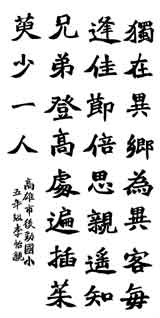 獨在異鄉為異客每
逢佳節倍思親遙知
兄弟登高處遍插茱
萸少一人
高雄市後勁國小
五年級李怡